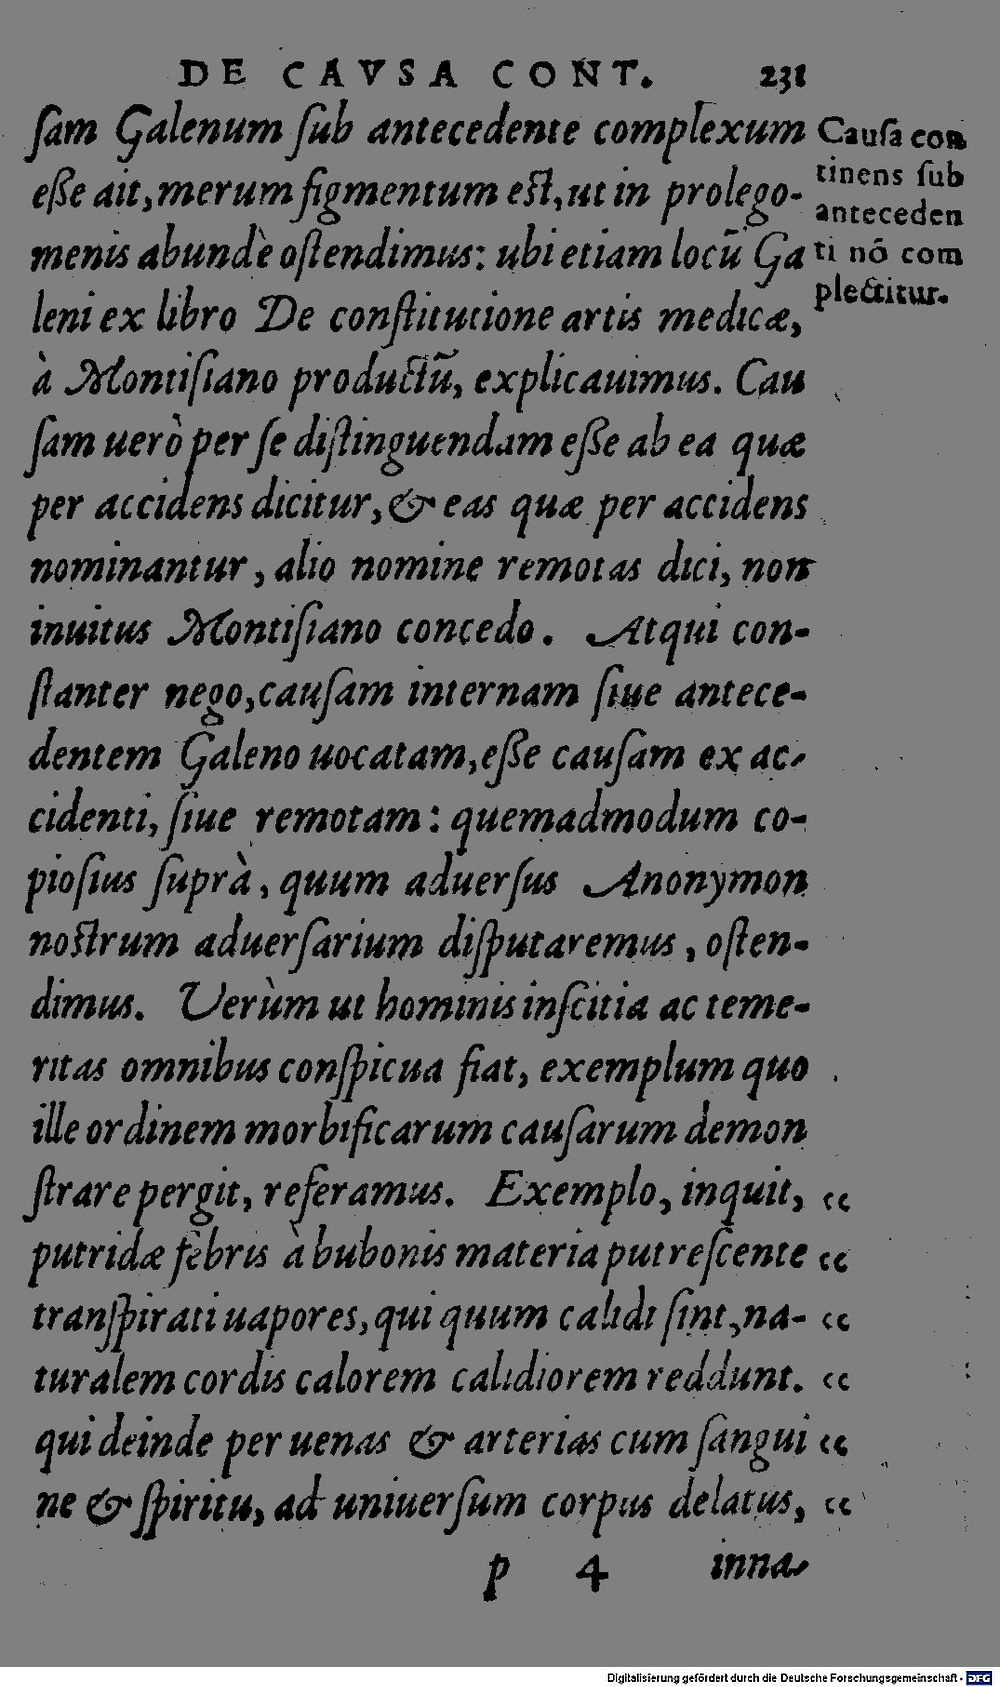 DE CAVSA CONT. 231
ſam Galenum ſub antecedente complexum
eſſe ait, merum figmentum eſt, ut in prolego-
menis abundè oſtendimus: ubi etiam locũ Ga
leni ex libro De conſtitutione artis medicæ,
à Montiſiano productũ, explicauimus. Cau
ſam uerò per ſe diſtinguendam eſſe ab ea quæ
per accidens dicitur, & eas quæ per accidens
nominantur, alio nomine remotas dici, non
inuitus Montiſiano concedo. Atqui con-
ſtanter nego, cauſam internam ſiue antece-
dentem Galeno uocatam, eſſe cauſam ex ac-
cidenti, ſiue remotam: quemadmodum co-
pioſius ſuprà, quum aduerſus Anonymon
noſtrum aduerſarium diſputaremus, oſten-
dimus. Verùm ut hominis inſcitia ac teme-
ritas omnibus conſpicua fiat, exemplum quo
ille ordinem morbificarum cauſarum demon
ſtrare pergit, referamus. Exemplo, inquit, “
putridæ febris à bubonis materia putreſcente “
tranſpirati uapores, qui quum calidi ſint, na- “
turalem cordis calorem calidiorem reddunt. “
qui deinde per uenas & arterias cum ſangui “
ne & ſpiritu, ad uniuerſum corpus delatus, “
p 4 inna-
Cauſa con
tinens ſub
anteceden
ti nõ com
plectitur.
Digitalisierung gefördert durch die Deutsche Forschungsgemeinschaft - DFG